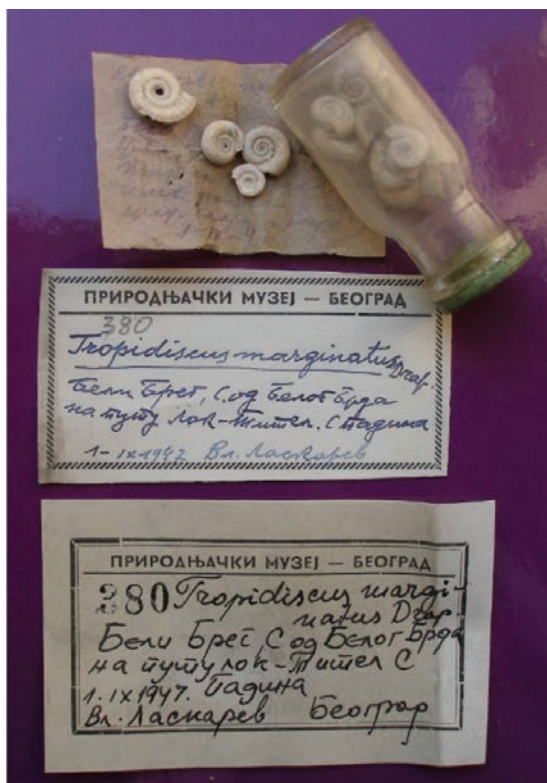 ПРИРОДЊАЧКИ МУЗЕЈ — БЕОГРАД
380
Tropidiscus marginatus Drap.
Бели Брег, С од Белог Брда
на путу Лок-Тител. С Падина
1-IX 1947 Вл. Ласкарев
ПРИРОДЊАЧКИ МУЗЕЈ — БЕОГРАД
380 Tropidiscus margi-
natus Drap
Бели Брег, С од Белог Брда
на путу Лок-Тител С
1.IX 1947. Падина
Вл. Ласкарев Београд